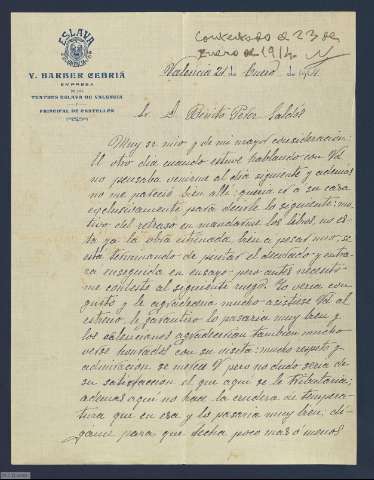 ESLAVA
V. BARBER CEBRIÁ
EMPRESA
DE LOS
TEATROS ESLAVA DE VALENCIA
Y
PRINCIPAL DE CASTELLÓN
Contestado el 23 de
Enero de 1914
Valencia 21 de Enero de 1914
Sr. D. Benito Pérez Galdós
Muy sr mio y de mi mayor consideración:
El otro dia cuando estuve hablando con Vd
no pensaba venirme al dia siguiente y ademas
no me pareció bien alli: queria ir á su casa
exclusivamente para decirle lo siguiente: mo-
tivo del retraso en mandarme los libros, no es-
ta ya la obra estrenada bien a pesar mio, se
está terminando de pintar el decorado y entra-
ra enseguida en ensayo pero antes necesito
me conteste al siguiente ruego. Yo veria con
gusto y le agradeceria mucho asistiese Vd al
estreno, le garantizo lo pasaria muy bien y
los valencianos agradecerian tambien mucho
verse honrados con su visita: mucho respeto y
admiración se merece V pero no dudo seria de
su satisfaccion el que aqui se le tributaria;
ademas aqui no hace la crudeza de tempera-
tura que en esa y lo pasaria muy bien; di-
game para que fecha poco mas ó menos